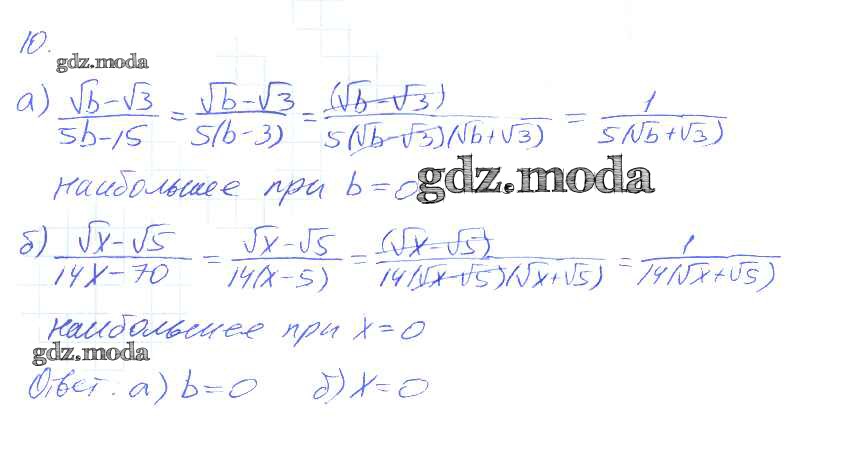 10.
gdz.moda
а) (√b-√3)/(5b-15) = (√b-√3)/(5(b-3)) = (√b-√3)/(5(√b-√3)(√b+√3)) = 1/(5(√b+√3))
наибольшее при b=0
gdz.moda
б) (√x-√5)/(14x-70) = (√x-√5)/(14(x-5)) = (√x-√5)/(14(√x-√5)(√x+√5)) = 1/(14(√x+√5))
наибольшее при x=0
gdz.moda
Ответ: а) b=0 б) x=0